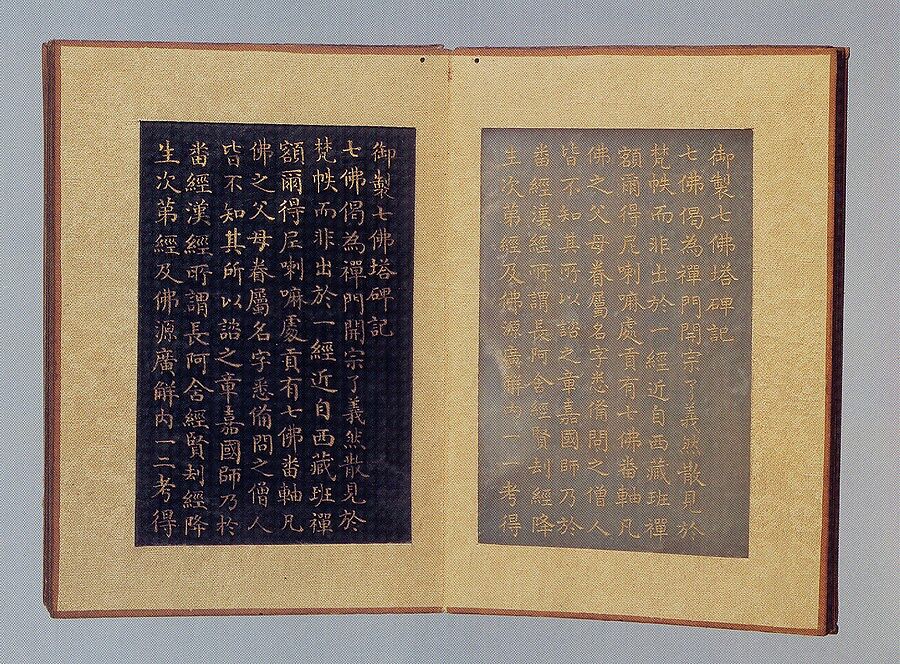 御製七佛塔碑記
七佛偈為禪門開宗了義然散見於
梵帙而非出於一經近自西藏班禪
額爾得尼喇嘛處貢有七佛畨軸凡
佛之父母眷屬名字悉俻問之僧人
皆不知其所以諮之章嘉國師乃於
畨經漢經所謂長阿含經賢刦經降
生次第經及佛源廣觧内一一考得
御製七佛塔碑記
七佛偈為禪門開宗了義然散見於
梵帙而非出於一經近自西藏班禪
額爾得尼喇嘛處貢有七佛畨軸凡
佛之父母眷屬名字悉俻問之僧人
皆不知其所以諮之章嘉國師乃於
畨經漢經所謂長阿含經賢刦經降
生次第經及佛源廣觧内一二考得